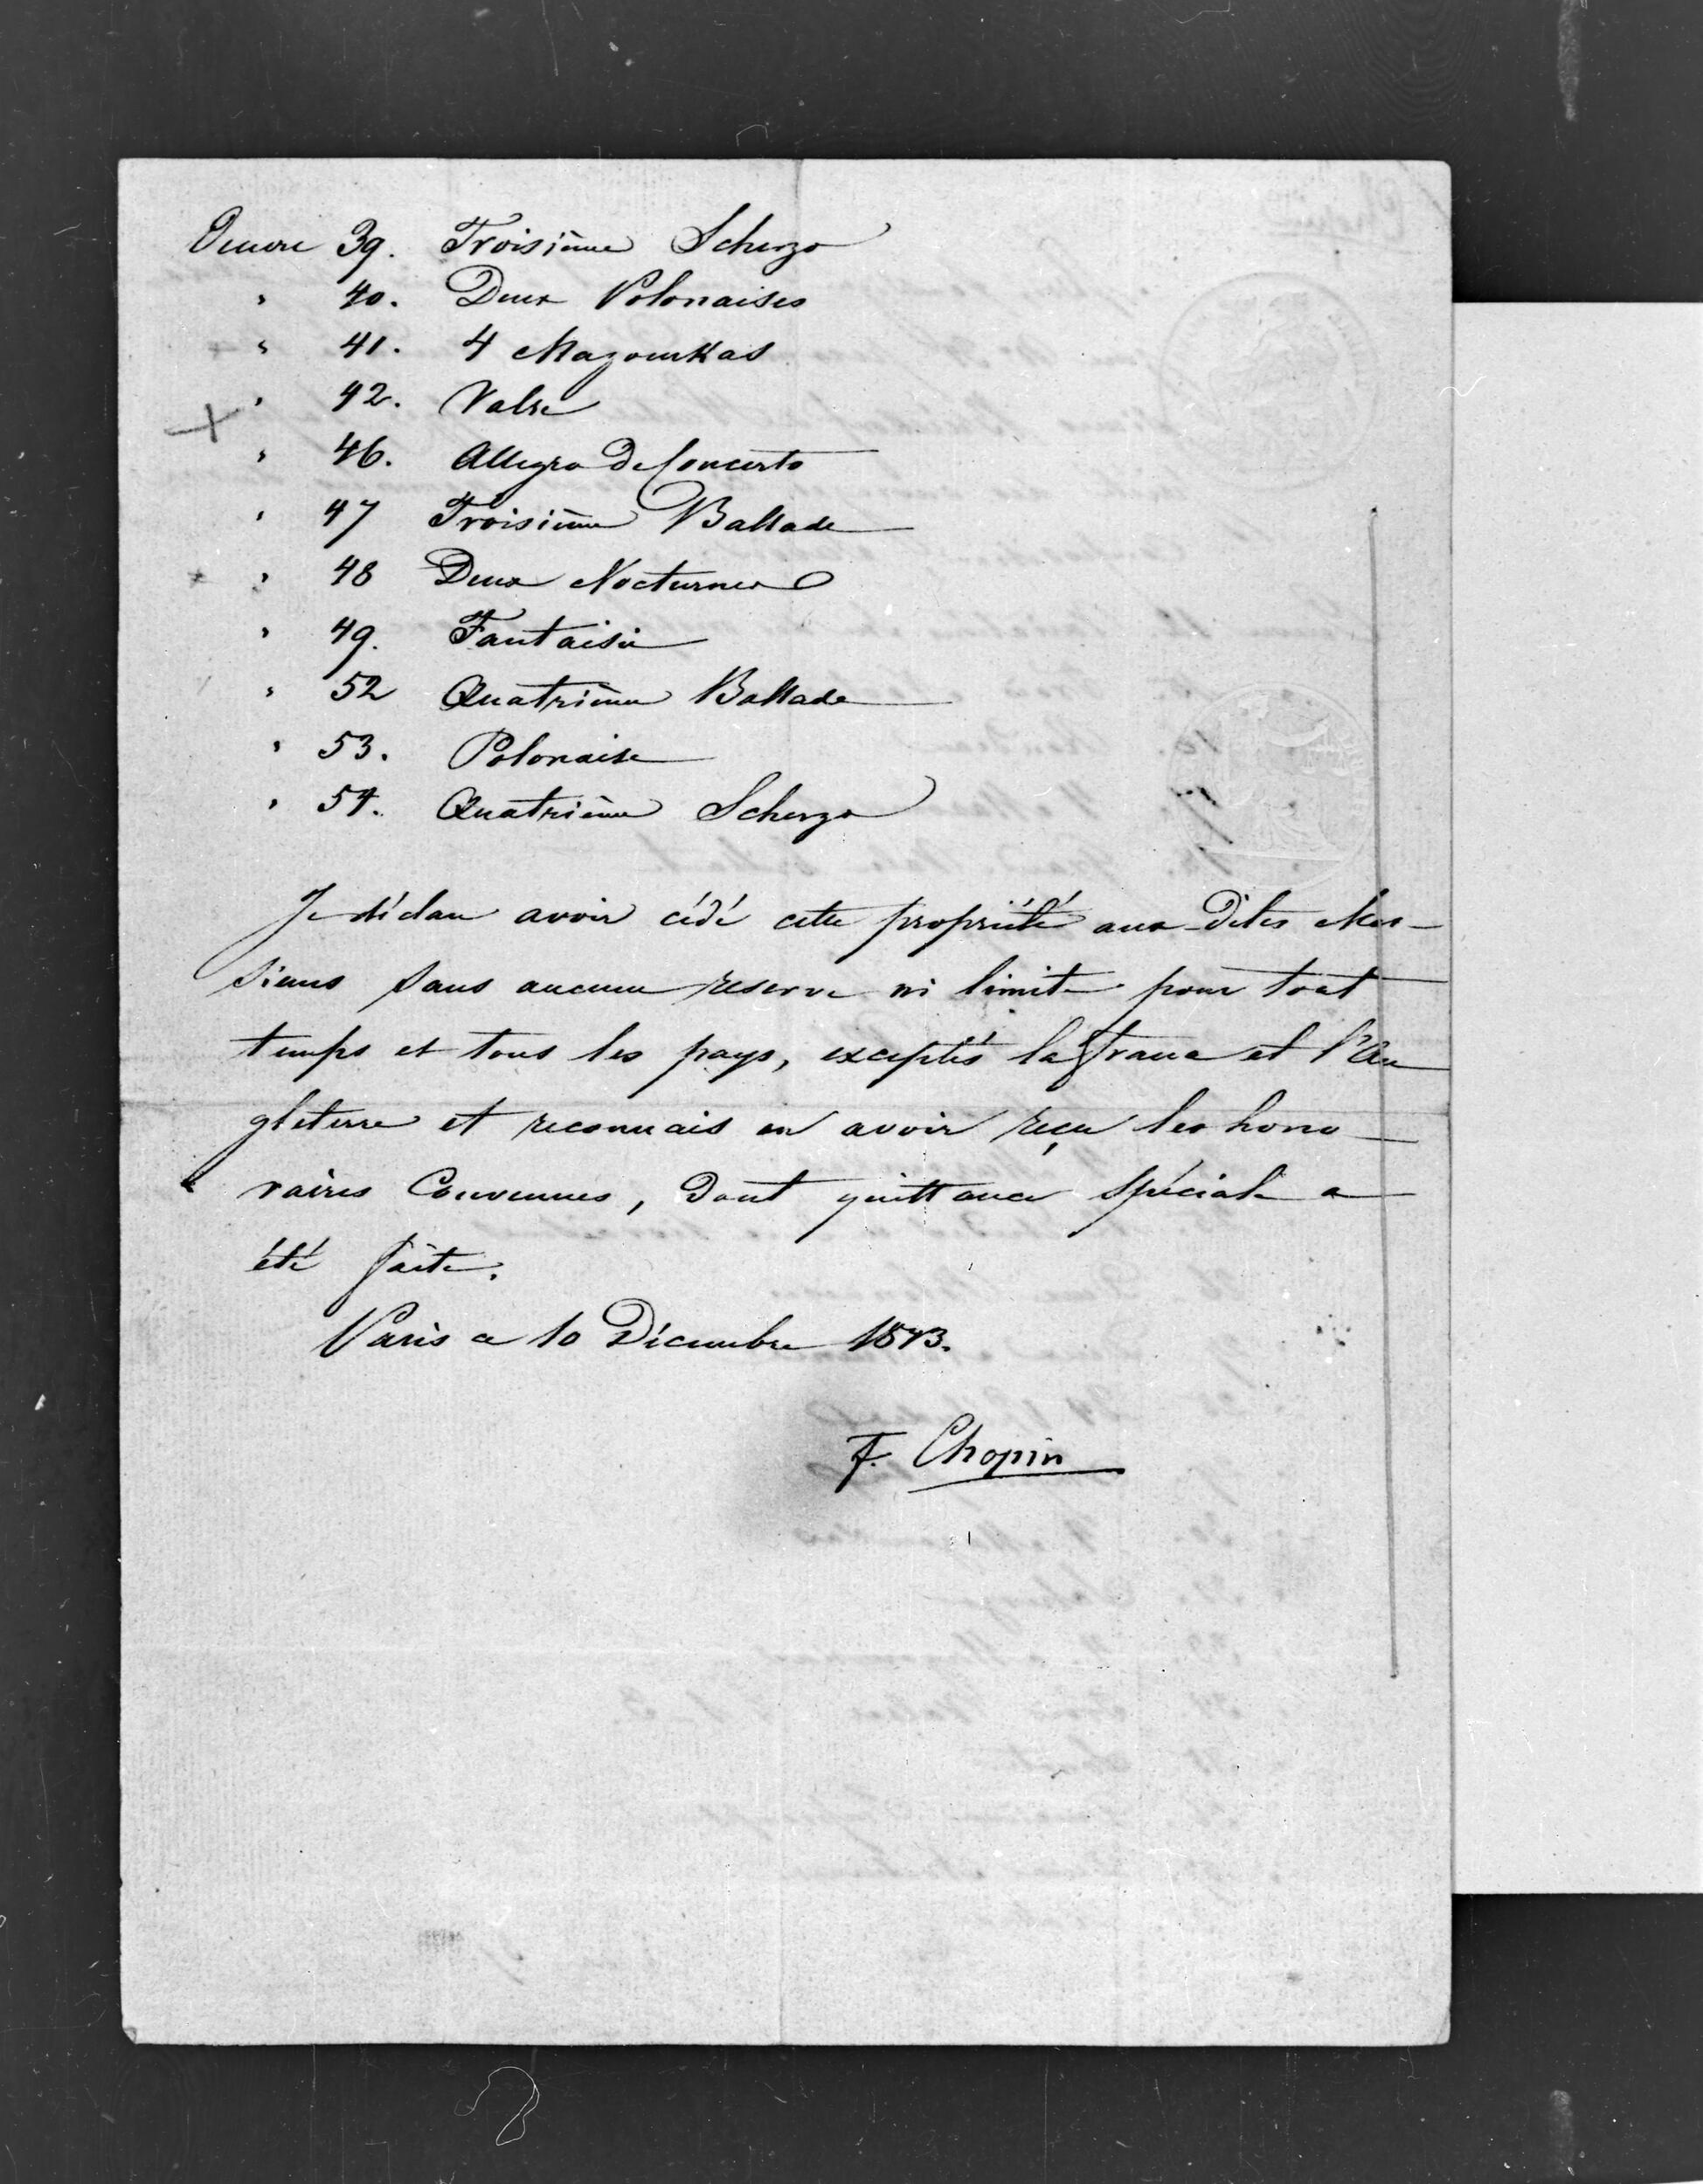 Oeuvre 39. Troisième Scherzo
" 40. Deux Polonaises
" 41. 4 Mazourkas
" 42. Valse
" 46. Allegro de Concerto
" 47 Troisième Ballade
" 48 Deux Nocturnes
" 49. Fantaisie
" 52 Quatrième Ballade
" 53. Polonaise
" 54. Quatrième Scherzo
Je déclare avoir cédé cette propriété aux-dites Mes-
sieurs sans aucune reserve ni limite pour tout
temps et tous les pays, exceptés la France et l'An
gleterre et reconnais en avoir reçu les hono
raires convenues, dont quittance spéciale a
été faite.
Paris ce 10 Décembre 1843.
F. Chopin